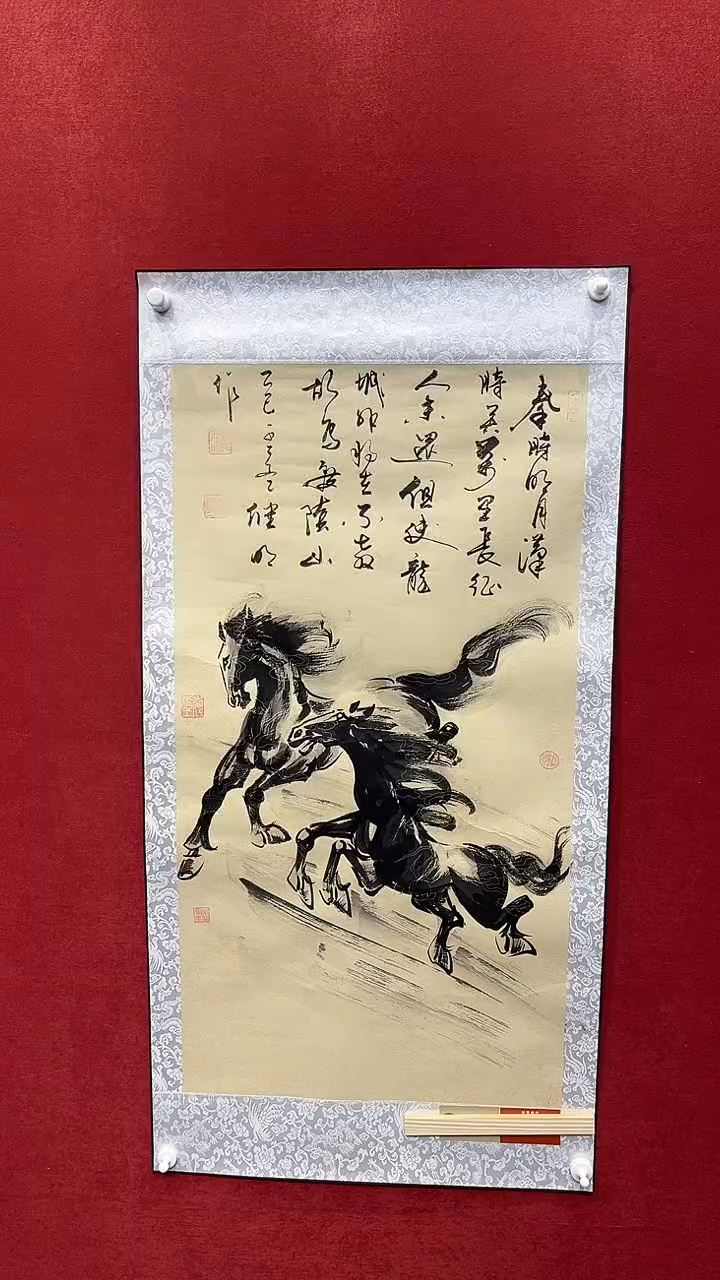 秦時明月漢
時关萬里長征
人未還但使龍
城飛将在不教
胡馬度陰山
乙巳
作